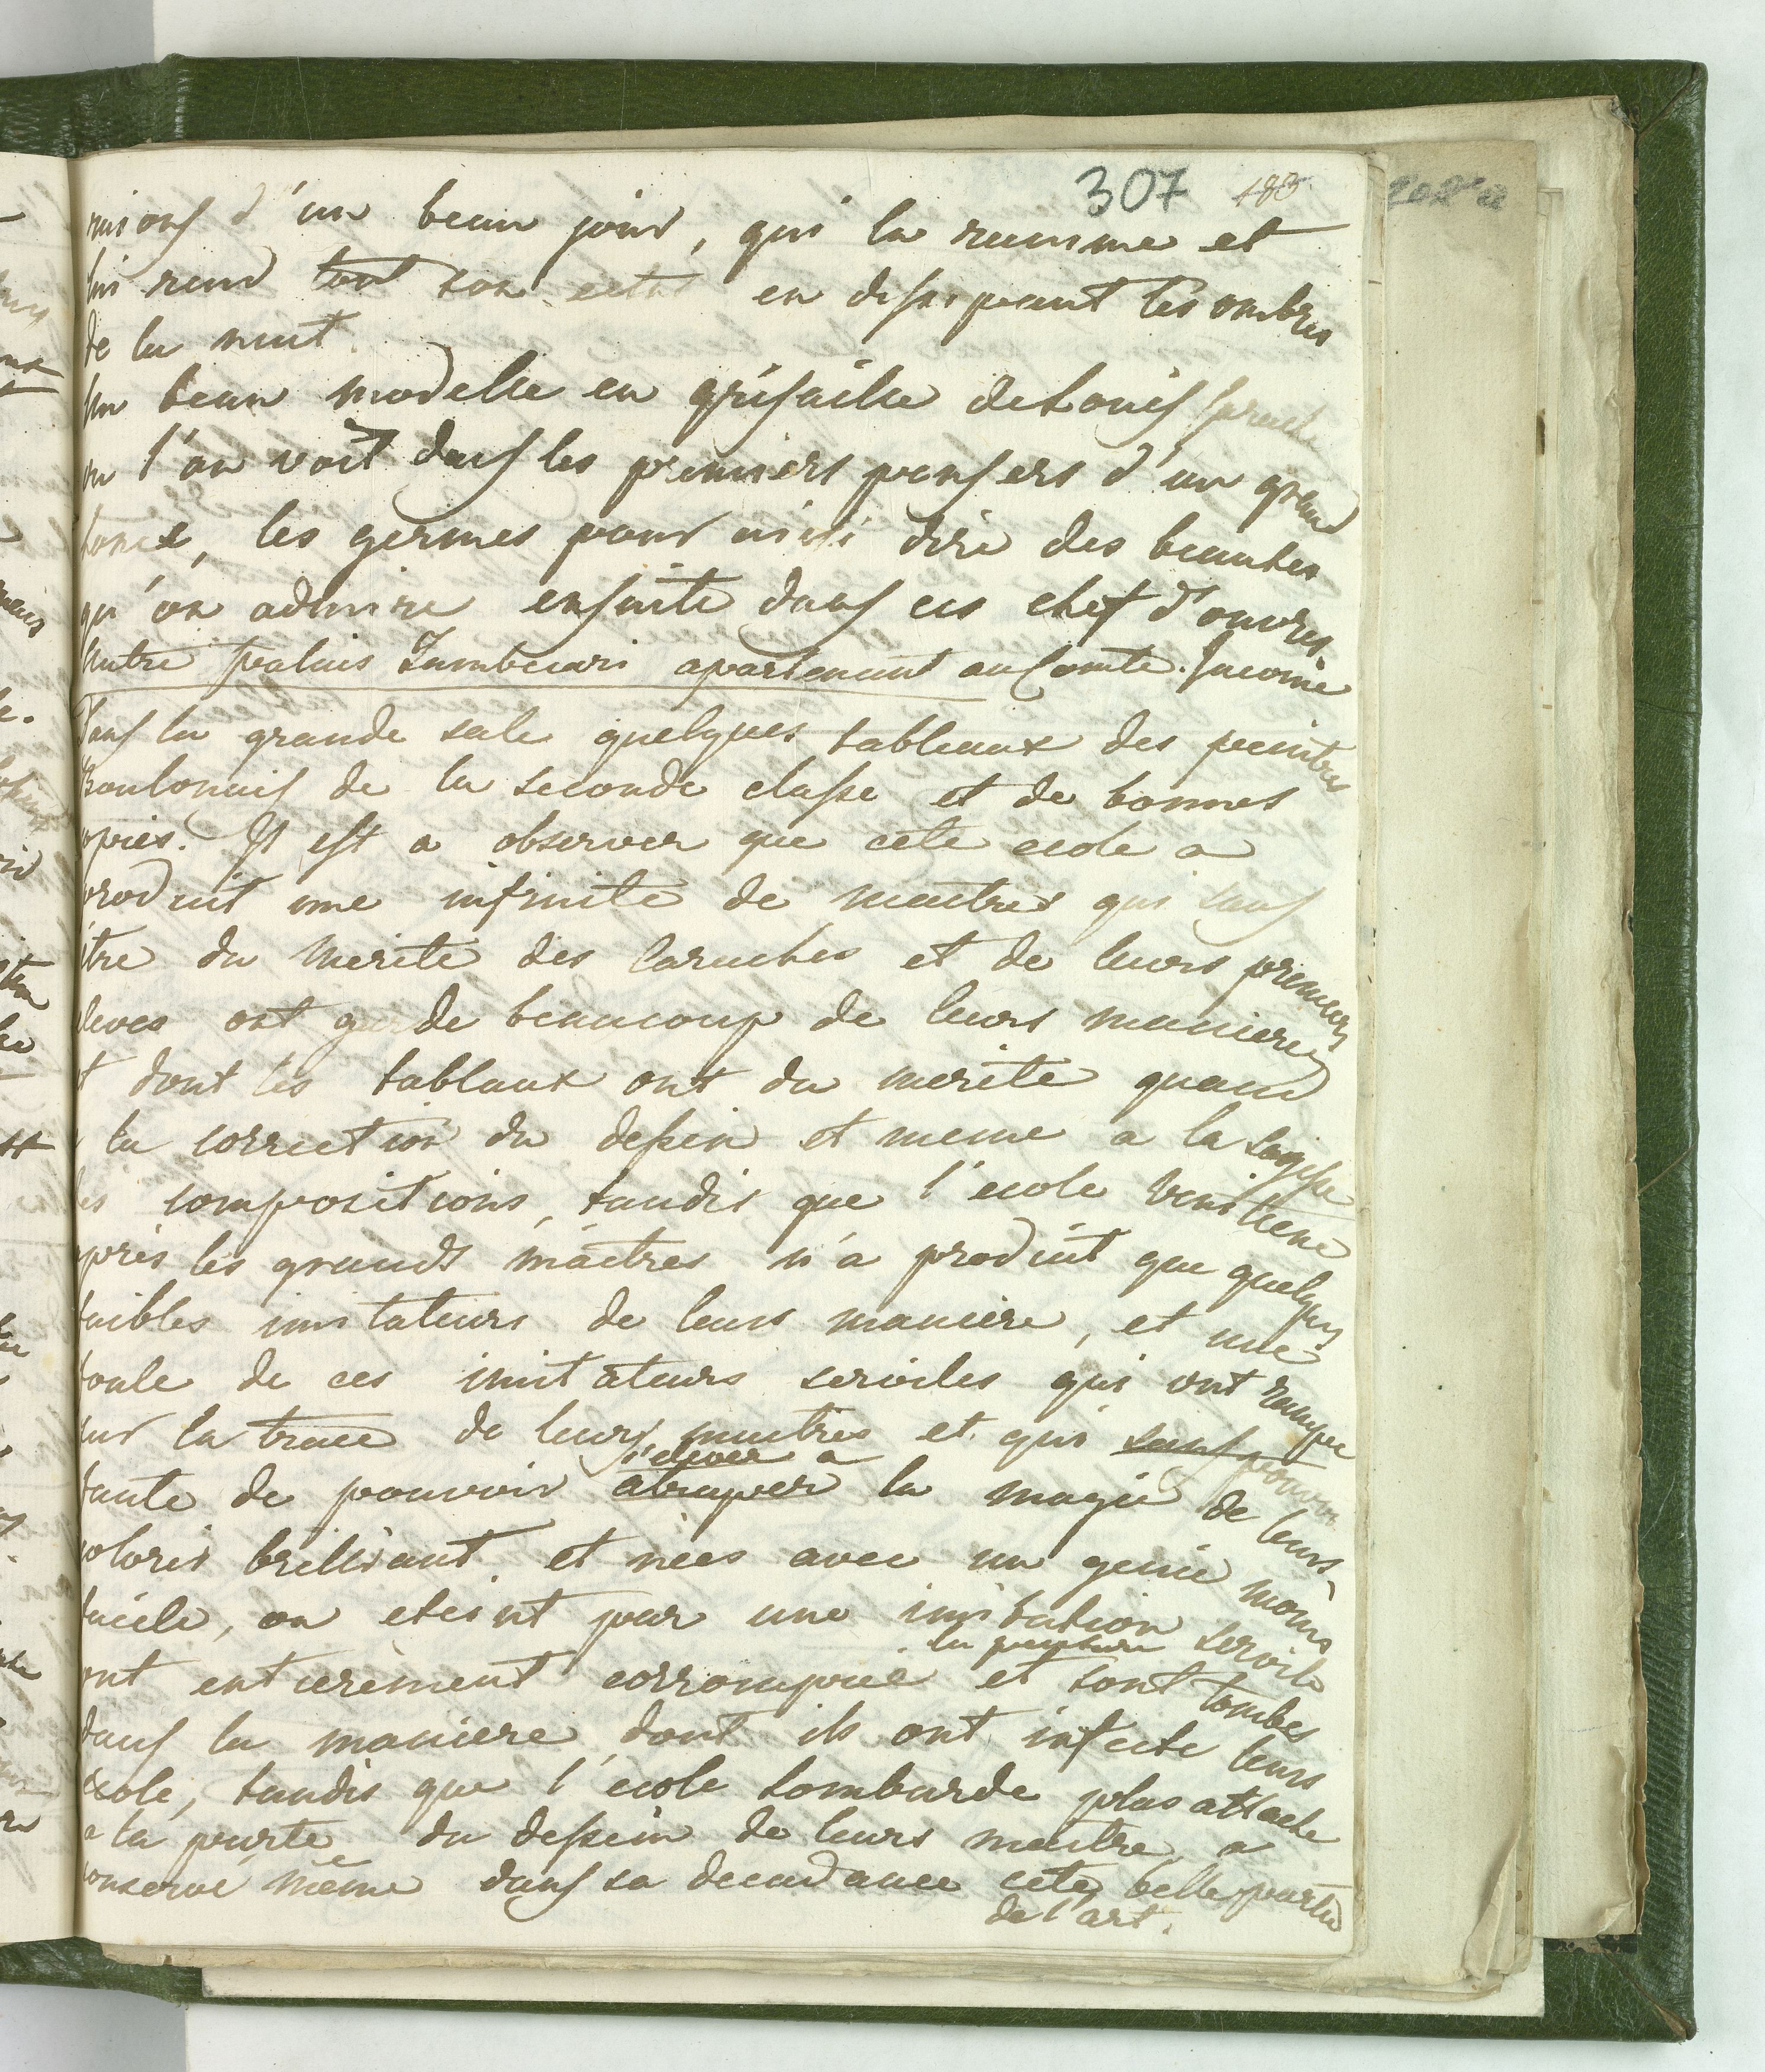 307 183
raions d'un beau jour, qui la ranime et
lui rend tout son eclat en dissipant les ombres
de la nuit.
Un beau modelle en grisaille de Louis Carache
ou l'on voit dans les premiers pensers d'un grand
homme, les germes pour ainsi dire des beautes
qu'on admire ensuite dans ces chef d'ouvres.
Autre palais Zambecari apartenant au Comte Jacome
Dans la grande sale quelques tableaux des peintres
Boulonais de la seconde classe et de bonnes
copies. Il est a observer que cete ecole a
produit une infinite de maitres qui sans
être du merite des Caraches et de leurs premiers
eleves ont garde beaucoup de leurs manieres
et dont les tablaux ont du merite quand
a la correction du dessein et meme a la sagesse
des compositions, tandis que l'ecole Venitiene
après les grands maitres n'a produit que quelques
faibles imitateurs de leurs maniere, et une
foule de ces imitateurs serviles qui ont rampé
sur la trace de leurs maitres et qui sans pouvoir
s'elever a
faute de pouvoir atraper la magie de leurs
coloris brillant et nées avec un genie moins
facile, ou eteint par une imitation servile
la peinture
ont entierement corrompue et sont tombes
dans la maniere, dont ils ont infecte leurs
ecole, tandis que l'ecole Lombarde plus attache
a la purte du dessein de leurs maitre, a
conservé même dans sa decadance cete belle partie
de l'art.